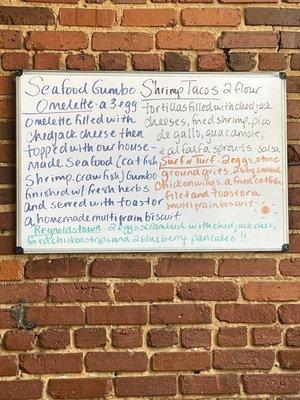 Seafood Gumbo
Omelette - a 3 egg
omelette filled with
chedjack cheese then
topped with our house-
made Seafood (catfish
Shrimp, crawfish) Gumbo
finished w/ fresh herbs
and served with toast or
a homemade multigrain biscuit
Shrimp Tacos 2 flour
tortillas filled with chedjack
cheeses, fried shrimp, pico
de gallo, guacamole,
alfalfa sprouts salsa
Surf n Turf. 2 eggs, stone
ground grits, 2 big
chicken wings, a fried catfish
filet and toast or a
multigrain biscuit.
Reynoldstown. 2 eggs scrambled with chedjack chee,
fried chicken strips and 2 blueberry pancakes !!